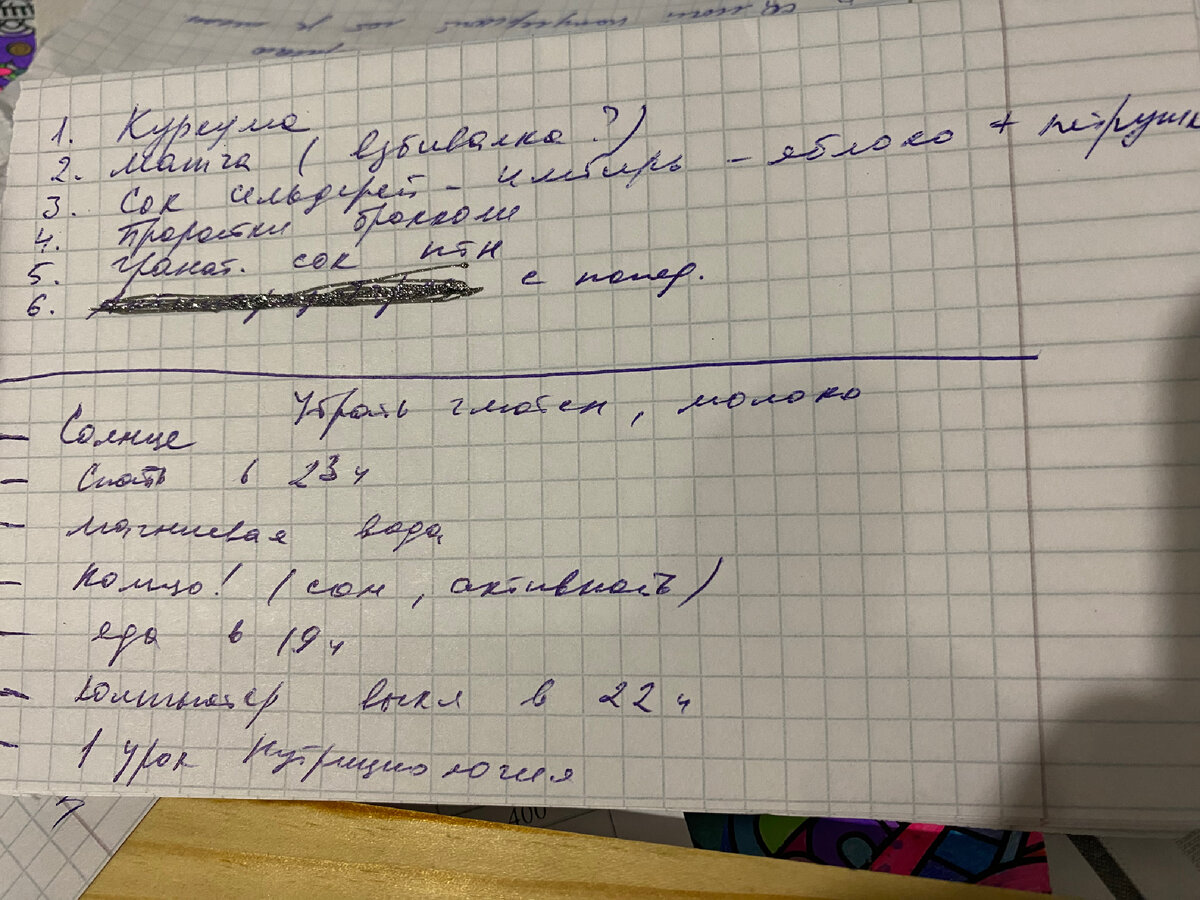 1. Куркума
2. Матча (взбивалка?)
3. Сок сельдерей - имбирь - яблоко + петрушк
4. Проростки брокколи
5. Гранат. сок птн
6. с понед.
Убрать глютен, молоко
— Солнце
— Спать в 23 ч
— магниевая вода
— Кольцо! (сон, активность)
— еда в 19 ч
— компьютер выкл в 22 ч
- 1 урок Нутрициология
400